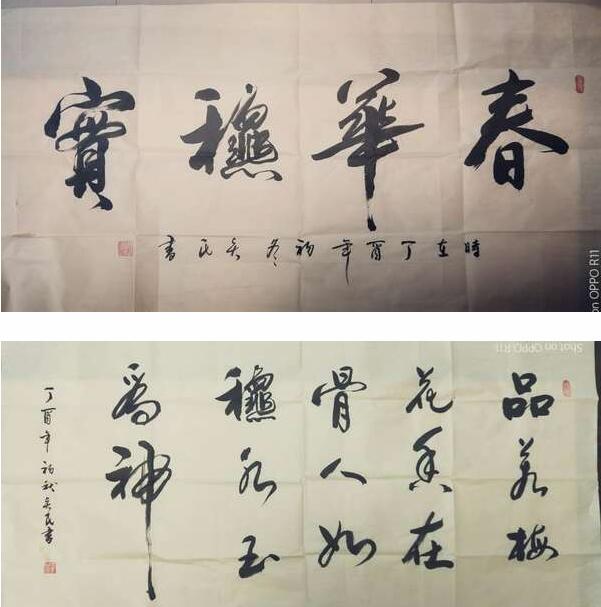 春華龝實
時在丁酉年初冬吴民書
on OPPO R11
Shot on OPPO R11
品若梅
花香在
骨人如
龝水玉
爲神
丁酉年初秋吴民書